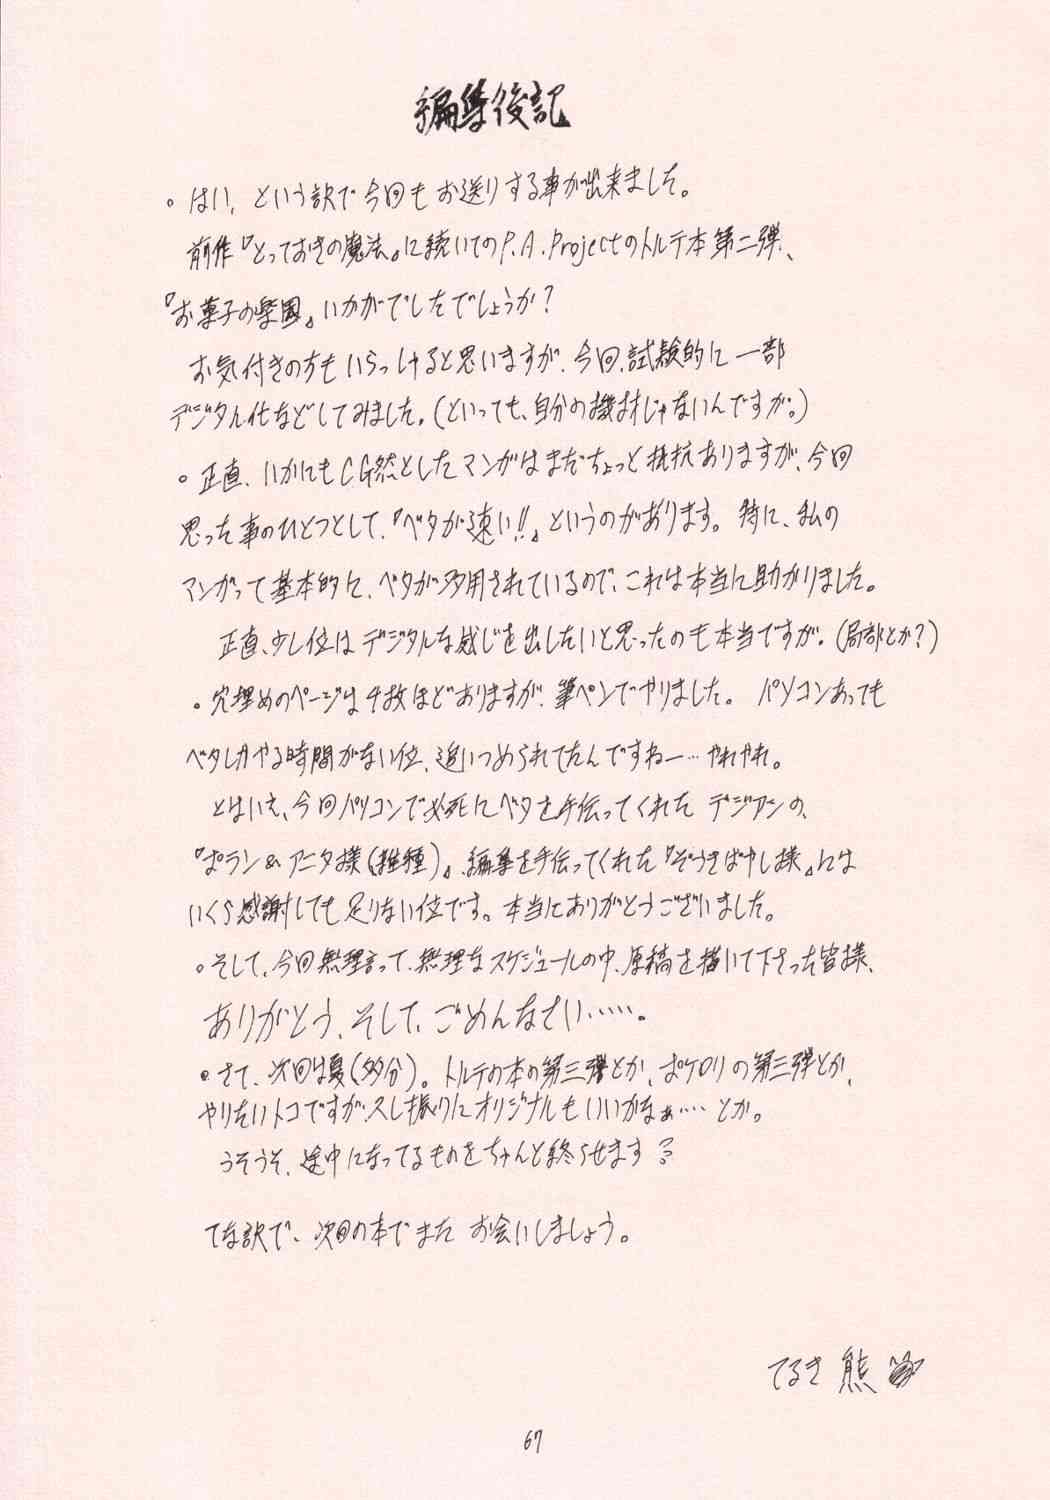 編集後記
。はい、という訳で今回もお送りする事が出来ました。
前作『とっておきの魔法』に続いてのP.A.Projectのトルテ本第二弾、
『お菓子の楽園』いかがでしたでしょうか?
お気付きの方もいらっしゃると思いますが、今回、試験的に一部
デジタル化などしてみました。(といっても、自分の機材じゃないんですが。)
。正直、いかにもCG然としたマンガはまだちょっと抵抗ありますが、今回
思った事のひとつとして、『ベタが速い!!』というのがあります。特に、私の
マンガって基本的に、ベタが多用されているので、これは本当に助かりました。
正直、少し位はデジタルな感じを出したいと思ったのも本当ですが。(局部とか?)
。穴埋めのページは4枚ほどありますが、筆ペンでやりました。パソコンあっても
ベタしかやる時間がない位、追いつめられてたんですねー…やれやれ。
とはいえ、今回パソコンで必死にベタを手伝ってくれたデジアンの、
『ポラン&アニタ様(雑種)』、編集を手伝ってくれた『ぞうきばやし様』には
いくら感謝しても足りない位です。本当にありがとうございました。
。そして、今回無理言って、無理なスケジュールの中、原稿を描いて下さった皆様、
ありがとう、そして、ごめんなさい……。
。さて、次回は夏(多分)。トルテの本の第三弾とか、ポケロリの第三弾とか、
やりたいトコですが、久し振りにオリジナルもいいかなぁ…とか。
うそうそ、途中になってるものをちゃんと終らせます?
てな訳で、次回の本でまたお会いしましょう。
てるき熊
67